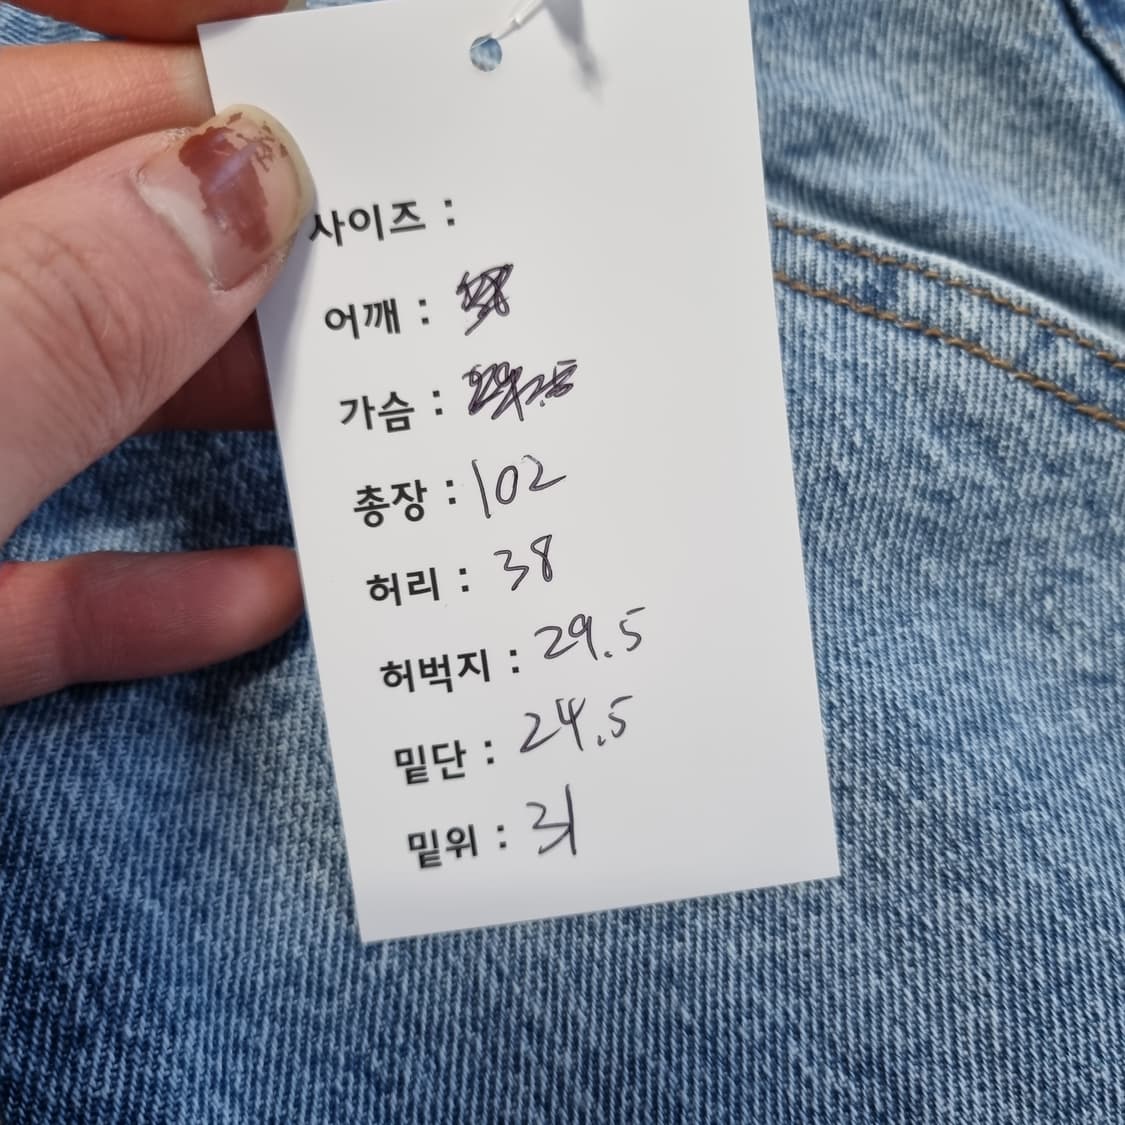 사이즈 :
어깨 :
가슴 :
총장 : 102
허리 : 38
허벅지 : 29.5
밑단 : 24.5
밑위 : 31